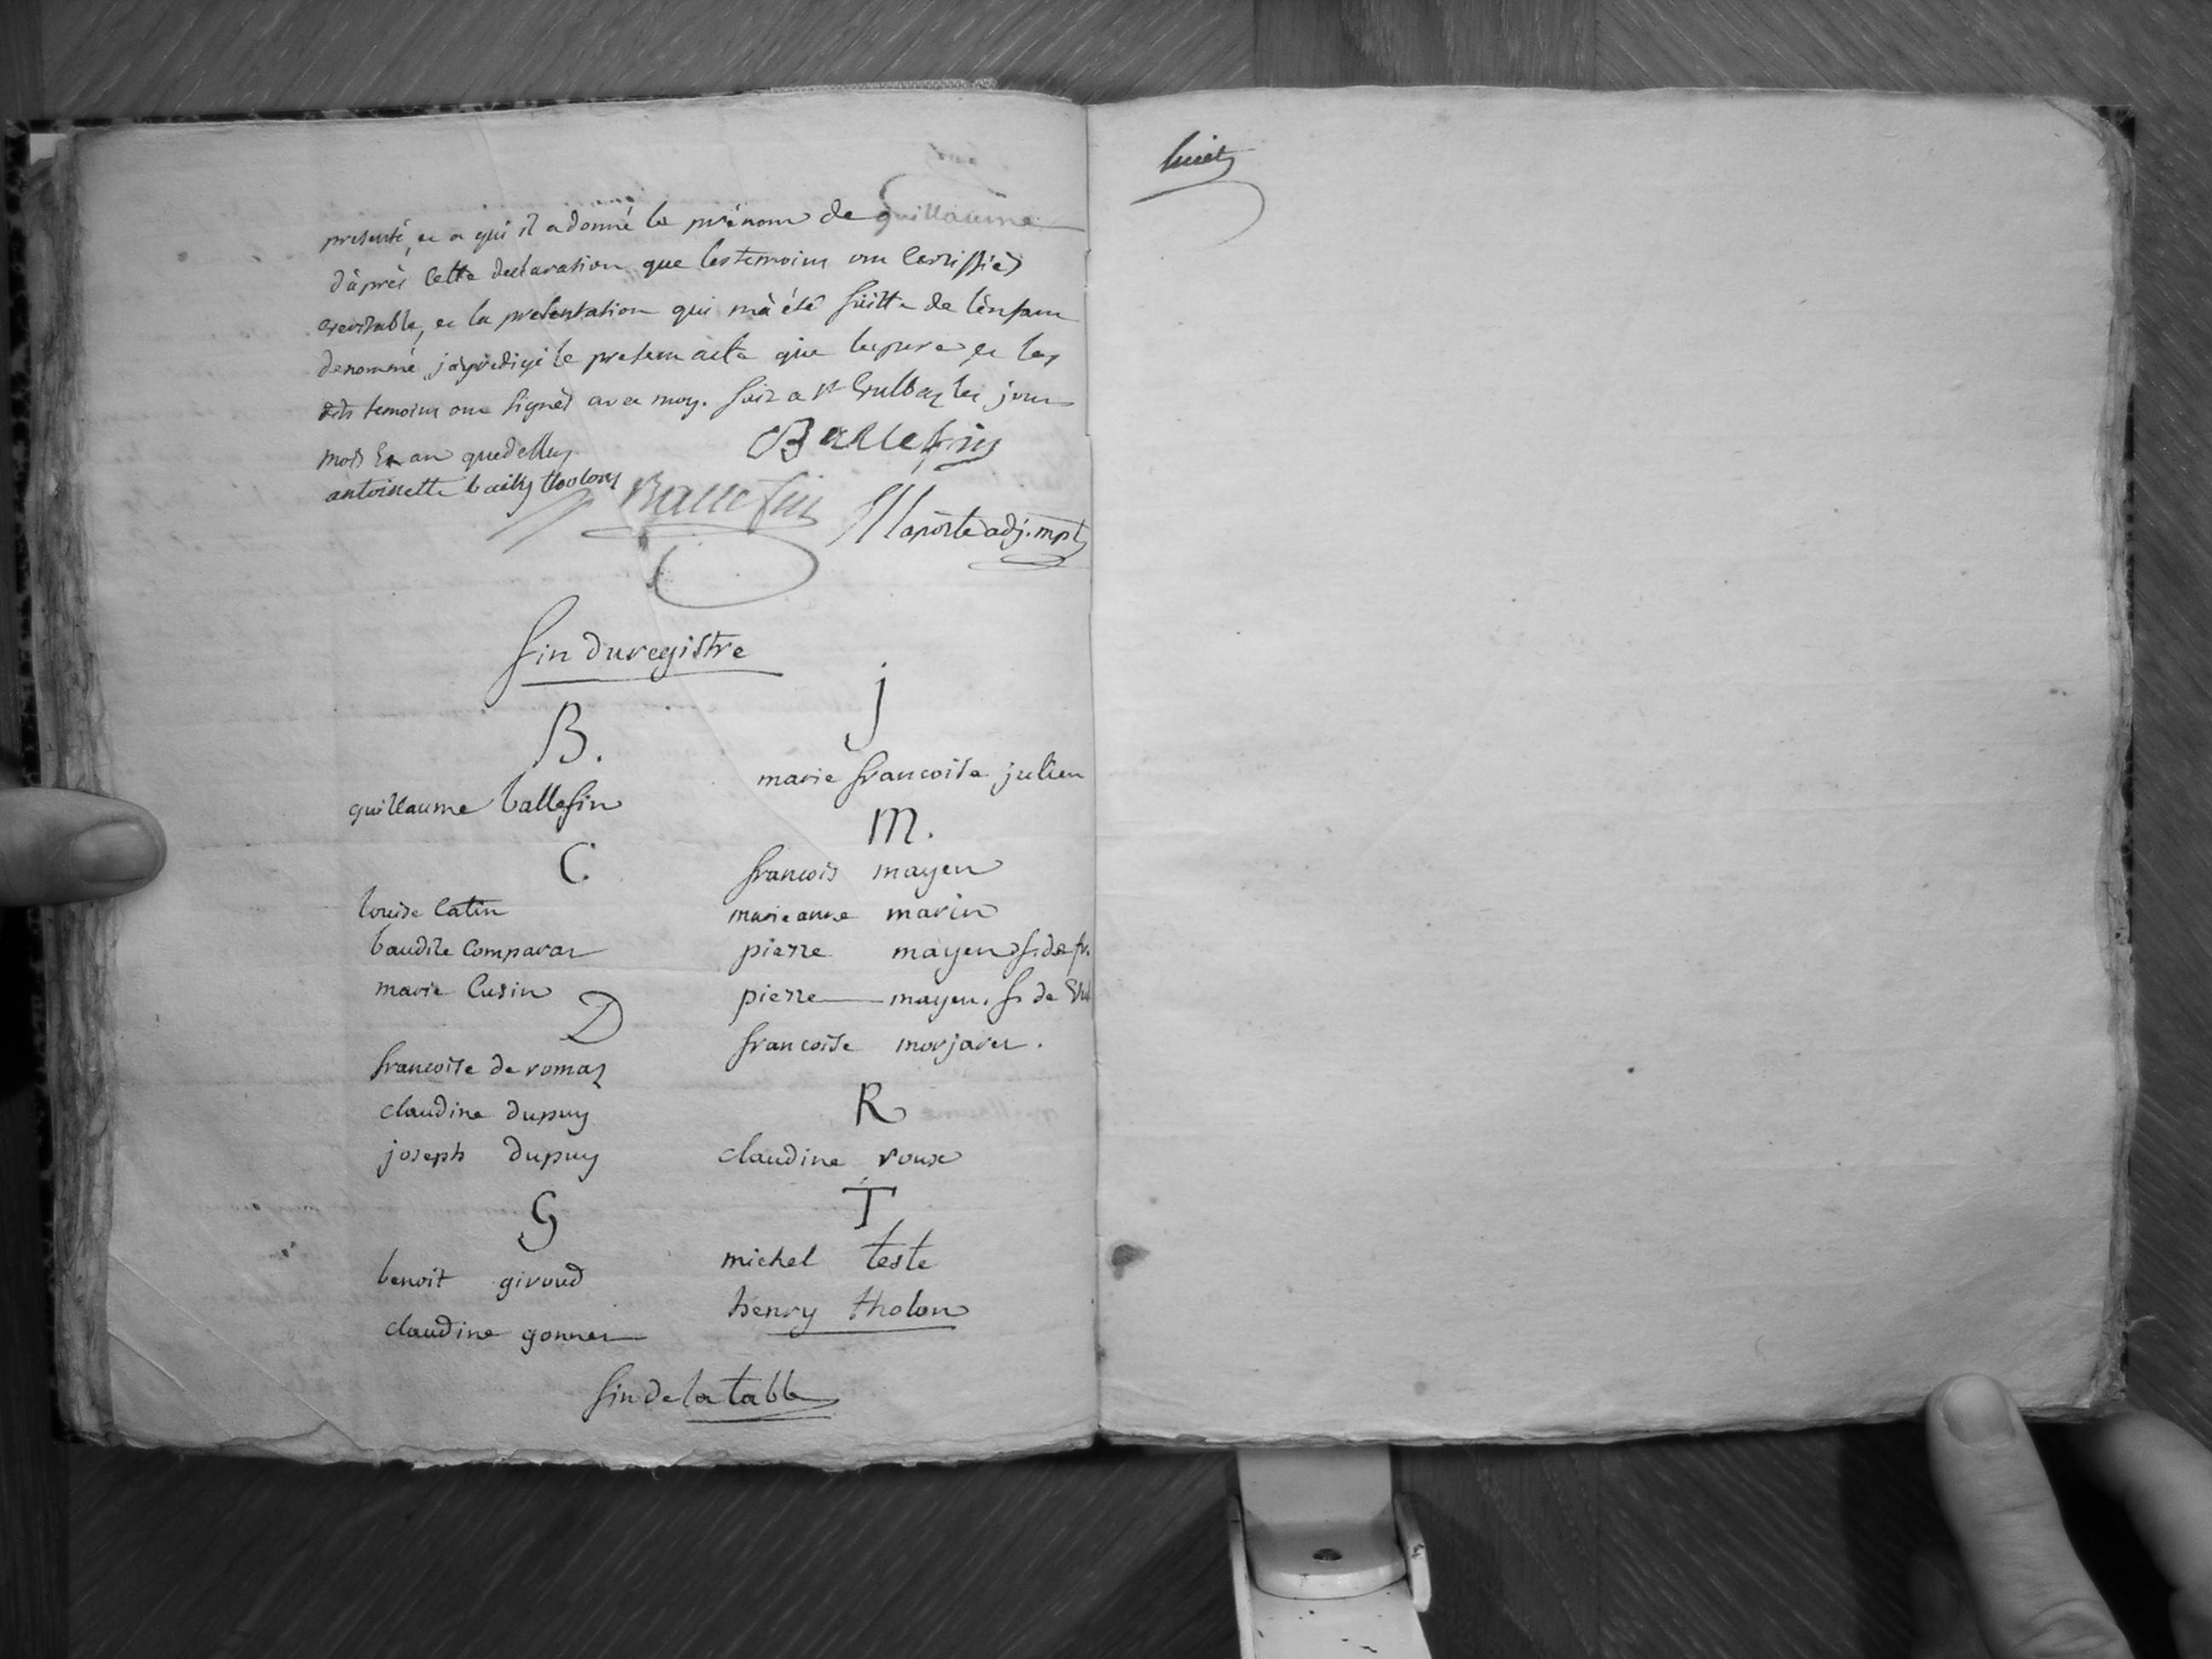 presenté, et a qui il a donné le prénom de guillaume
d'après cette declaration que les temoins ont certiffiés
veritable, et la presentation qui m'a été faitte de l'enfant
denommé, j'ay redigé le present acte que le pere et les
dits temoins ont signés avec moy. fait a st Vulbaz les jour
mois et an que dessus
Ballefin
antoinette bailly tholons
Ballefin
laporte adj. mpl
fin du registre
B.
guillaume ballefin
C
louise Catin
baudile Comparat
marie Cusin
D
francoise de romaz
claudine dupuy
joseph dupuy
G
benoit giroud
claudine gonnet
j
marie francoise julien
M.
francois mayen
marie anne marin
pierre mayen f. de fr.
pierre mayen. f. de Vul
francoise morjaret.
R
claudine roux
T
michel teste
henry tholon
fin de la table
huit